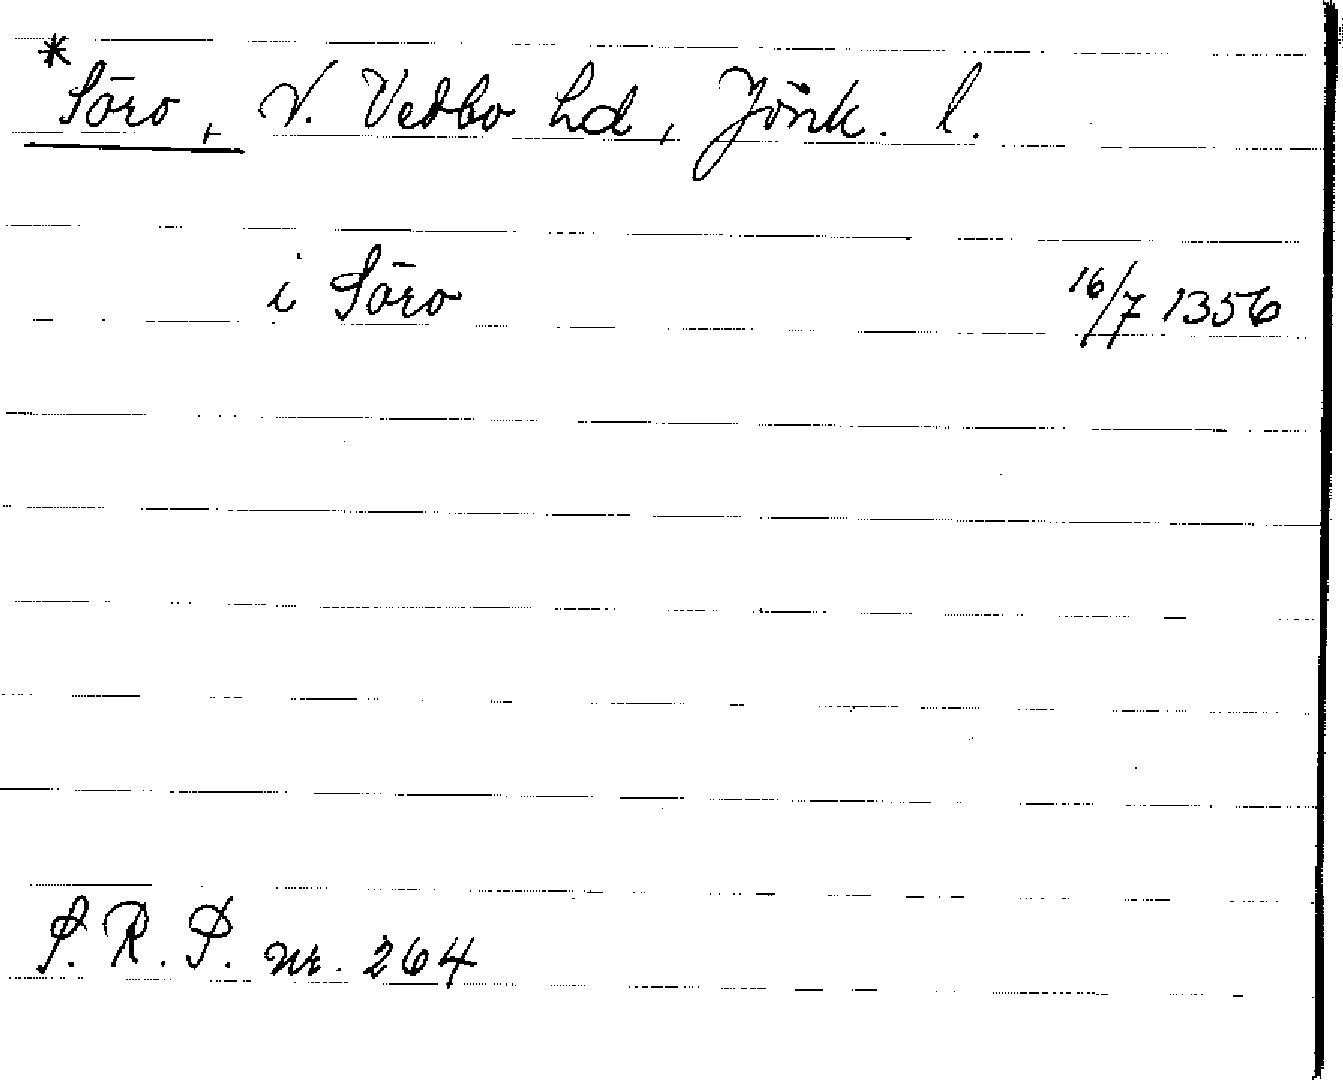 * Söro, N. Vedbo hd, Jönk. l.
i Söro 16/7 1356
S. R. P. nr. 264